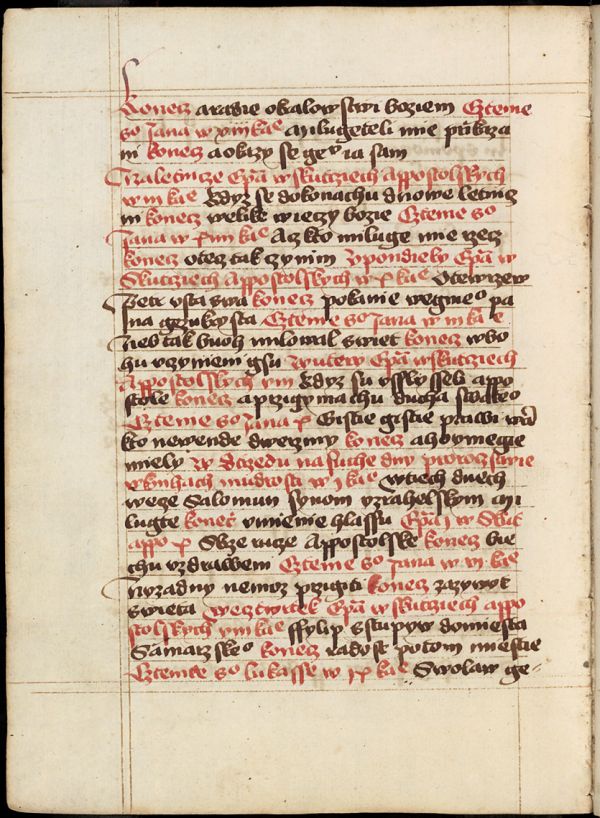 Konecz aradie okalowstwi boziem Cztenie
so Jana w xiiii kaē Milugeteli mie prikaza
ni konecz aokazy se gemu ia sam
Na letnicze Epā w skutciech Appostolskych
w ii kaē kdyz se dokonachu dnowe letnicz
ni konecz welike wieczy bozie Cztenie so
Jana w xiiii kaē Acz kto miluge mie rzecz
konecz otecz tak czynim W pondiely Epā w
Skutciech Appostolskych w x kaē Otewrzew
Petr usta swa konecz pokanie wegmeno pa
na gezukrysta Cztenie so Jana w iii kaē
Neb tak buoh milowal swiet konecz w bo
hu uczyniem gsu W utery Epā w skutciech
Appostolskych viii kdyz su usslysseli appo
stole konecz a przigymachu ducha swateho
Cztenie so Jana x Gistie gistie prawi wām
kto newende dwerzmy konecz a hoyniegie
miely W Strzedu na suche dny proroczstwie
w knihach mudrosti w j kaē W tiech dnech
wece Salomun synom yzrahelskym Mi
lugte konecz umienie hlassu Epā j w Skut
appo v Skrze rucze Appostolske konecz bie
chu uzdraweni Cztenie so Jana w vj kaē
Nyzadny nemoz przigiti konecz za zywot
swieta We cztwrtek Epā w skutciech appo
stolskych viii kaē ffylip sstupyw do miesta
Samarzskeho konecz radost potom miestie
Cztenie so lukasse w ix kaē Swolaw ge-